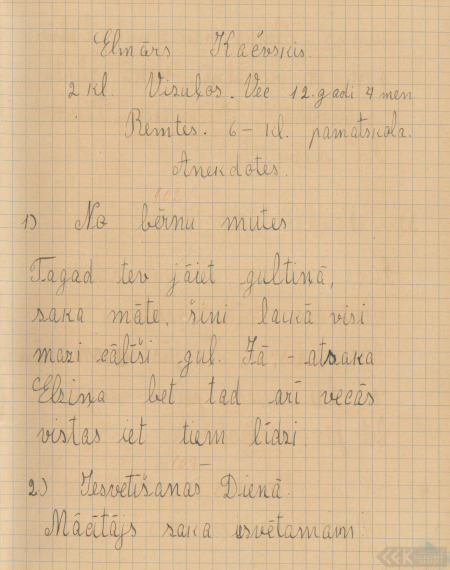 Elmārs Kačevskis.
2 kl. Visuļos. Vec 12.gadi 4 mēn
Remtes. 6-kl. pamatskola.
Anekdotes.
1) No bērnu mutes
Tagad tev jāiet gultiņā,
saka māte, šinī laikā visi
mazi cālīši guļ. Jā - atsaka
Elziņa bet tad arī vecās
vistas iet tiem līdzi
2) Iesvētīšanas Dienā.
Mācītājs saka esvētamam